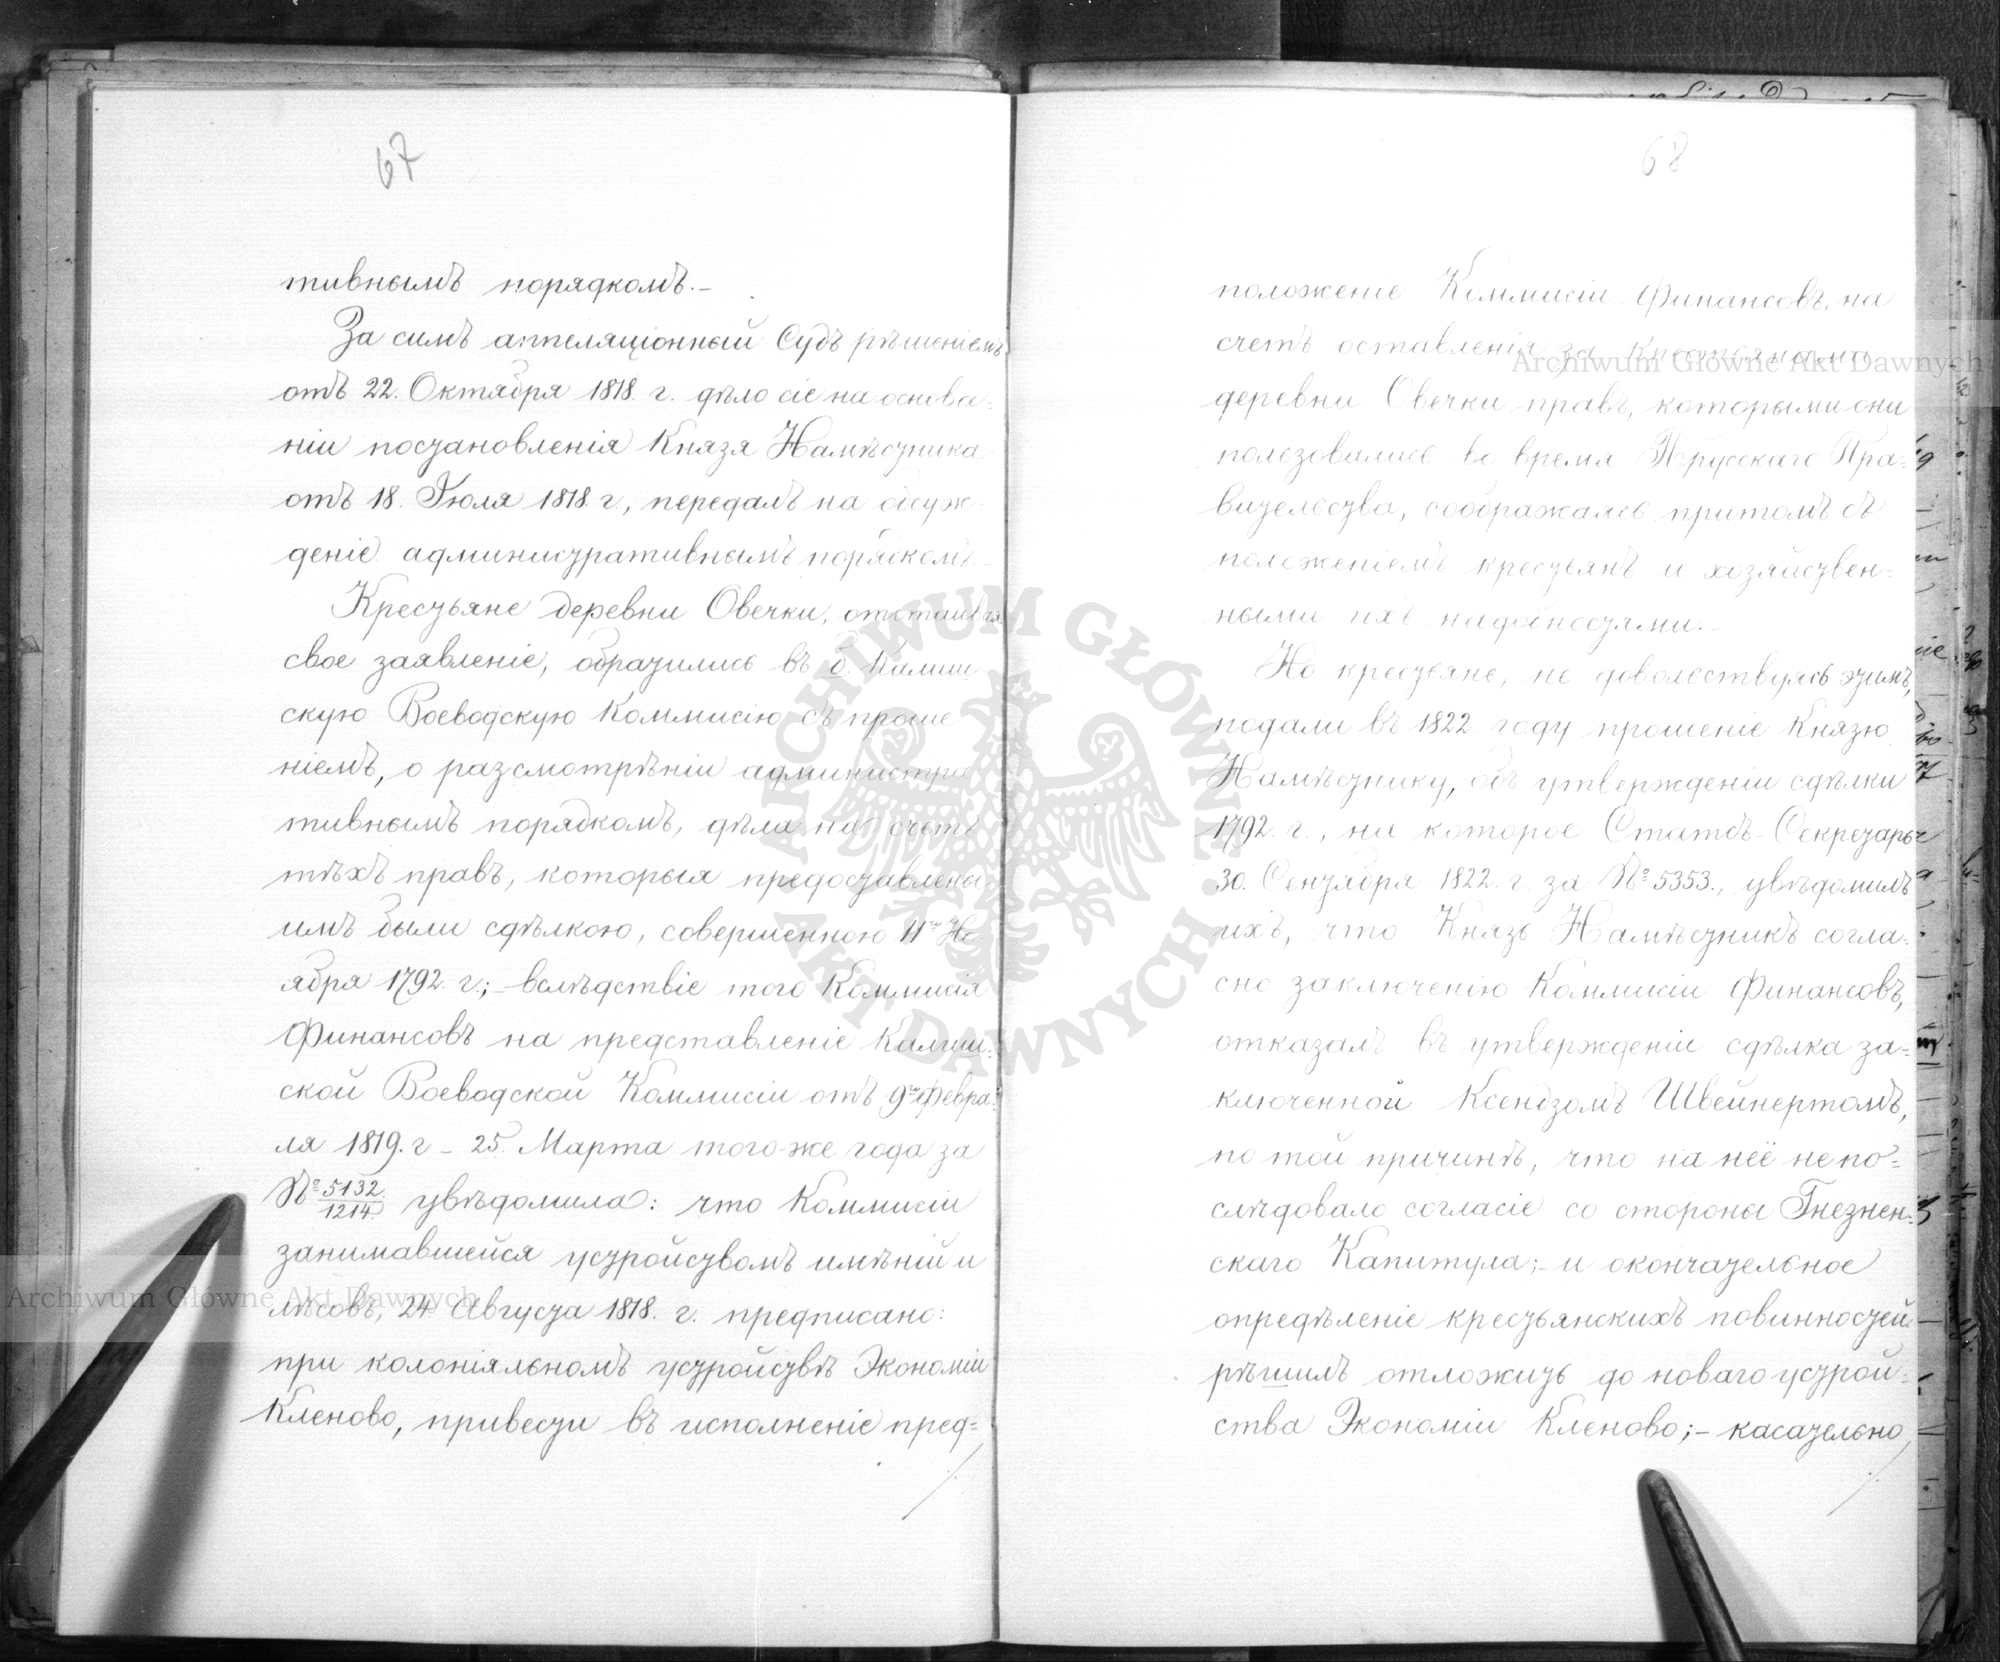 67
тивнымъ порядкомъ.–
За симъ аппеляціонный Судъ рѣшеніемъ
отъ 22. Октября 1818. г. дѣло сіе на основа=
ніи постановленія Князя Намѣстника
отъ 18. Іюля 1818. г., передалъ на обсуж=
деніе административнымъ порядкомъ.–
Крестьяне деревни Овечки, отстаивая
свое заявленіе, обратились въ б. Калиш
скую Воеводскую Коммисію съ проше
ніемъ, о разсмотрѣніи администра
тивнымъ порядкомъ, дѣла на счетъ
тѣхъ правъ, которыя предоставлены
имъ были сдѣлкою, совершенною 11го Но
ября 1792. г.;– вслѣдствіе того Коммисія
Финансовъ на представленіе Калиш=
ской Воеводской Коммисіи отъ 9го Февра=
ля 1819. г – 25. Марта того-же года за
№ 5132/1214. увѣдомила: что Коммисіи
занимавшейся устройствомъ имѣній и
лѣсовъ, 24 Августа 1818. г. предписано:
при колоніяльномъ устройствѣ Экономіи
Кленово, привести въ исполненіе пред=
68
положеніе Коммисіи Финансовъ, на
счетъ оставленія за Крестьянами
деревни Овечки правъ, которыми они
пользовались во время Прусскаго Пра=
вительства, соображаясь притомъ съ
положеніемъ крестьянъ и хозяйствен=
ными ихъ надобностями.–
Но крестьяне, не довольствуясь этимъ,
подали въ 1822 году прошеніе Князю
Намѣстнику, объ утвержденіи сдѣлки
1792. г., на которое Статсъ-Секретарь
30. Сентября 1822. г. за № 5353., увѣдомилъ
ихъ, что Князь Намѣстникъ согла=
сно заключенію Коммисіи Финансовъ,
отказалъ въ утвержденіи сдѣлка за=
ключенной Ксендзомъ Швейнертомъ,
по той причинѣ, что на неё не по=
слѣдовало согласіе со стороны Гнезнен=
скаго Капитула;– и окончательное
опредѣленіе крестьянскихъ повинностей
рѣшилъ отложить до новаго устрой=
ства Экономіи Кленово;– касательно
Archiwum Główne Akt Dawnych
Archiwum Główne Akt Dawnych
ARCHIWUM GŁÓWNE AKT DAWNYCH